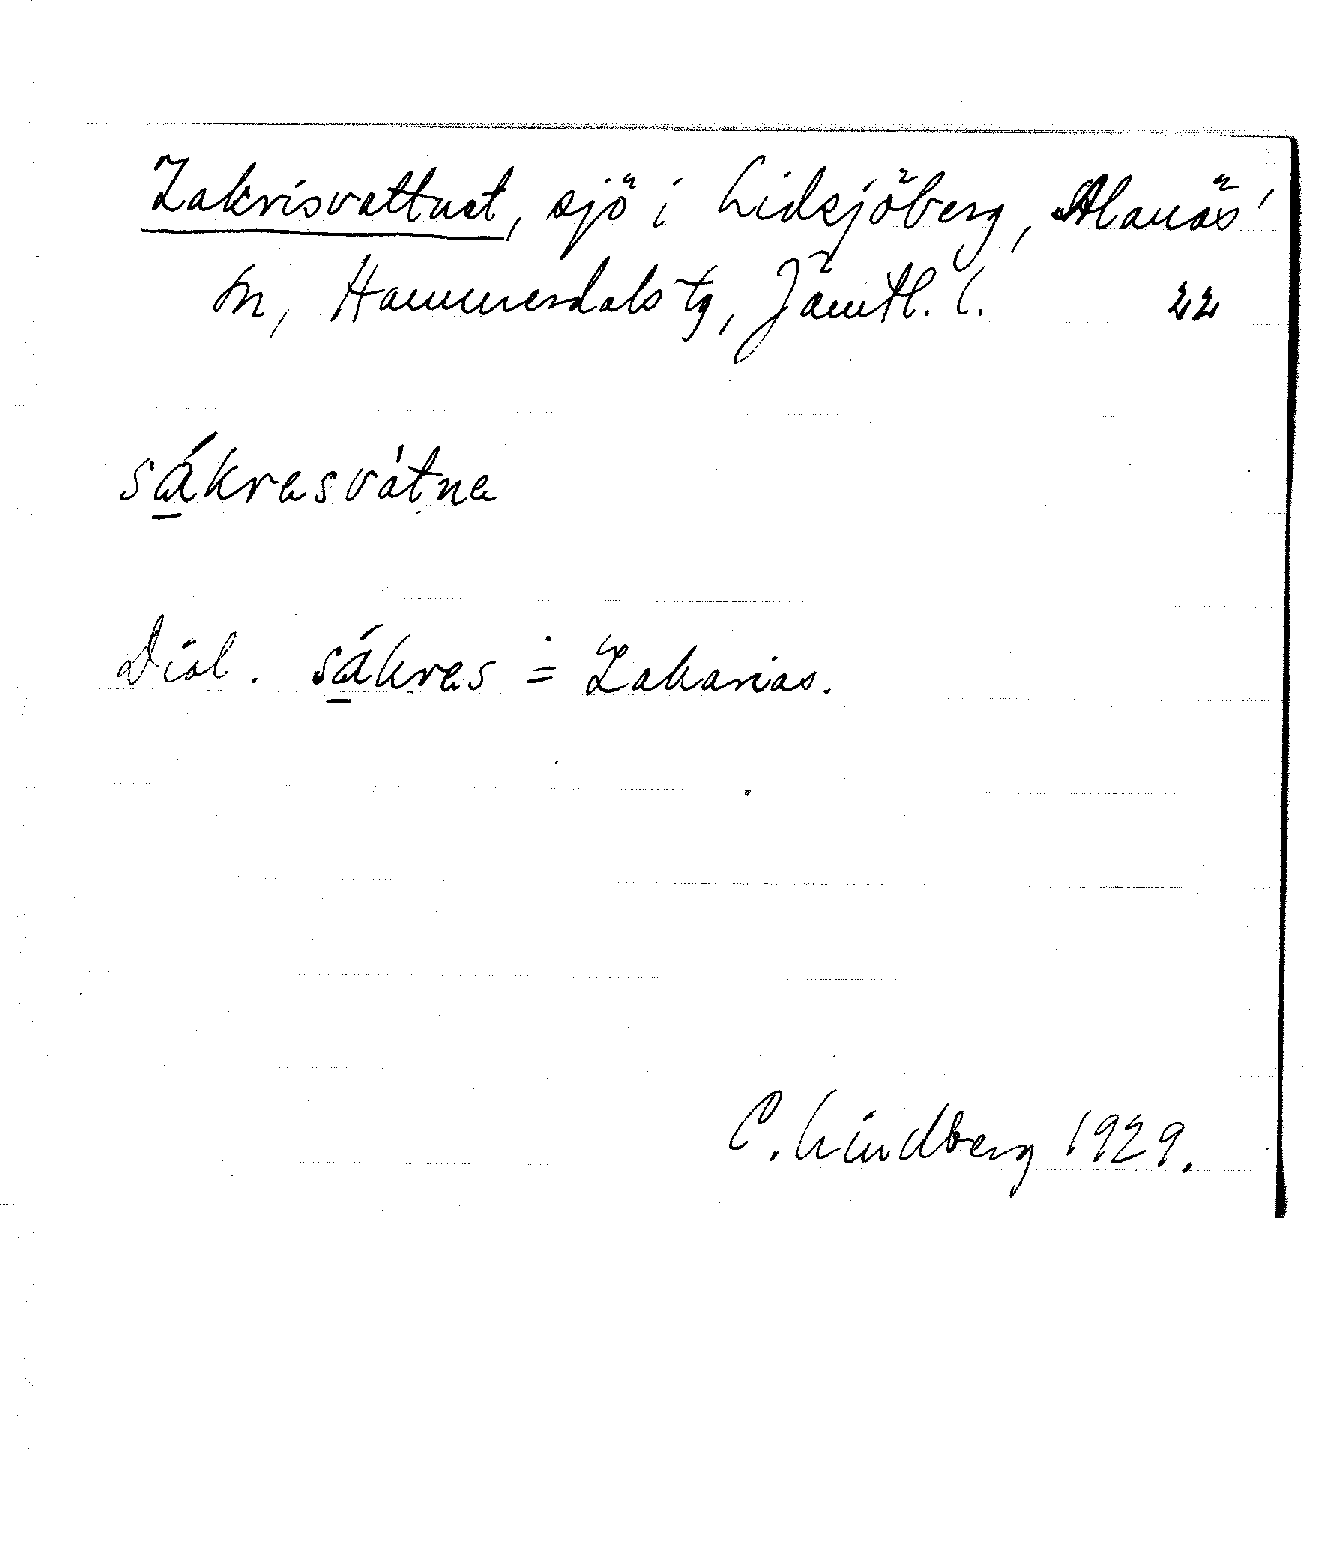 Zakrisvattnet, sjö i Lidsjöberg, Alanäs
sn, Hammerdals tg, Jämtl. l. 22
sákrasvátna
Dial. sákras = Zakarias.
C. Lindberg 1929.